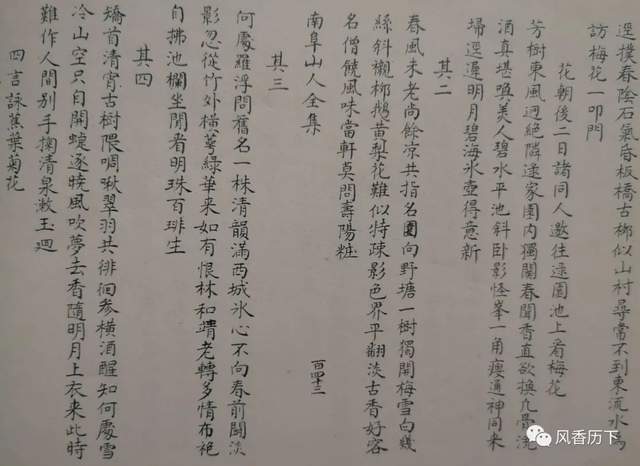 逕撲春陰石氣昏板橋古柳似山村尋常不到東流水為
訪梅花一叩門
花朝後二日諸同人邀往遠園池上看梅花
芳樹東風迥絕隣逺家園内獨開春聞香直欲換凡骨流
酒真堪喚美人碧水平池斜卧影怪峯一角瘦通神同来
埽逕遲明月碧海氷壺得意新
其二
春風未老尚餘凉共指名園向野塘一樹獨開梅雪白幾
絲斜襯柳鵝黄梨花難似特疎影色界平翻淡古香好客
名僧饒風味當軒莫問壽陽粧
南阜山人全集
百四十三
其三
何處羅浮問舊名一株清韻滿西城氷心不向春前鬪淡
影忽從竹外橫萼綠華来如有恨林和靖老轉多情布袍
自拂池欄坐閒看明珠百琲生
其四
矯首清宵古樹隈啁啾翠羽共徘徊参横酒醒知何處雪
冷山空只自開蜨逐曉風吹夢去香隨明月上衣来此時
難作人間别手掬清泉漱玉廻
四言詠蕉葉菊花
风香历下